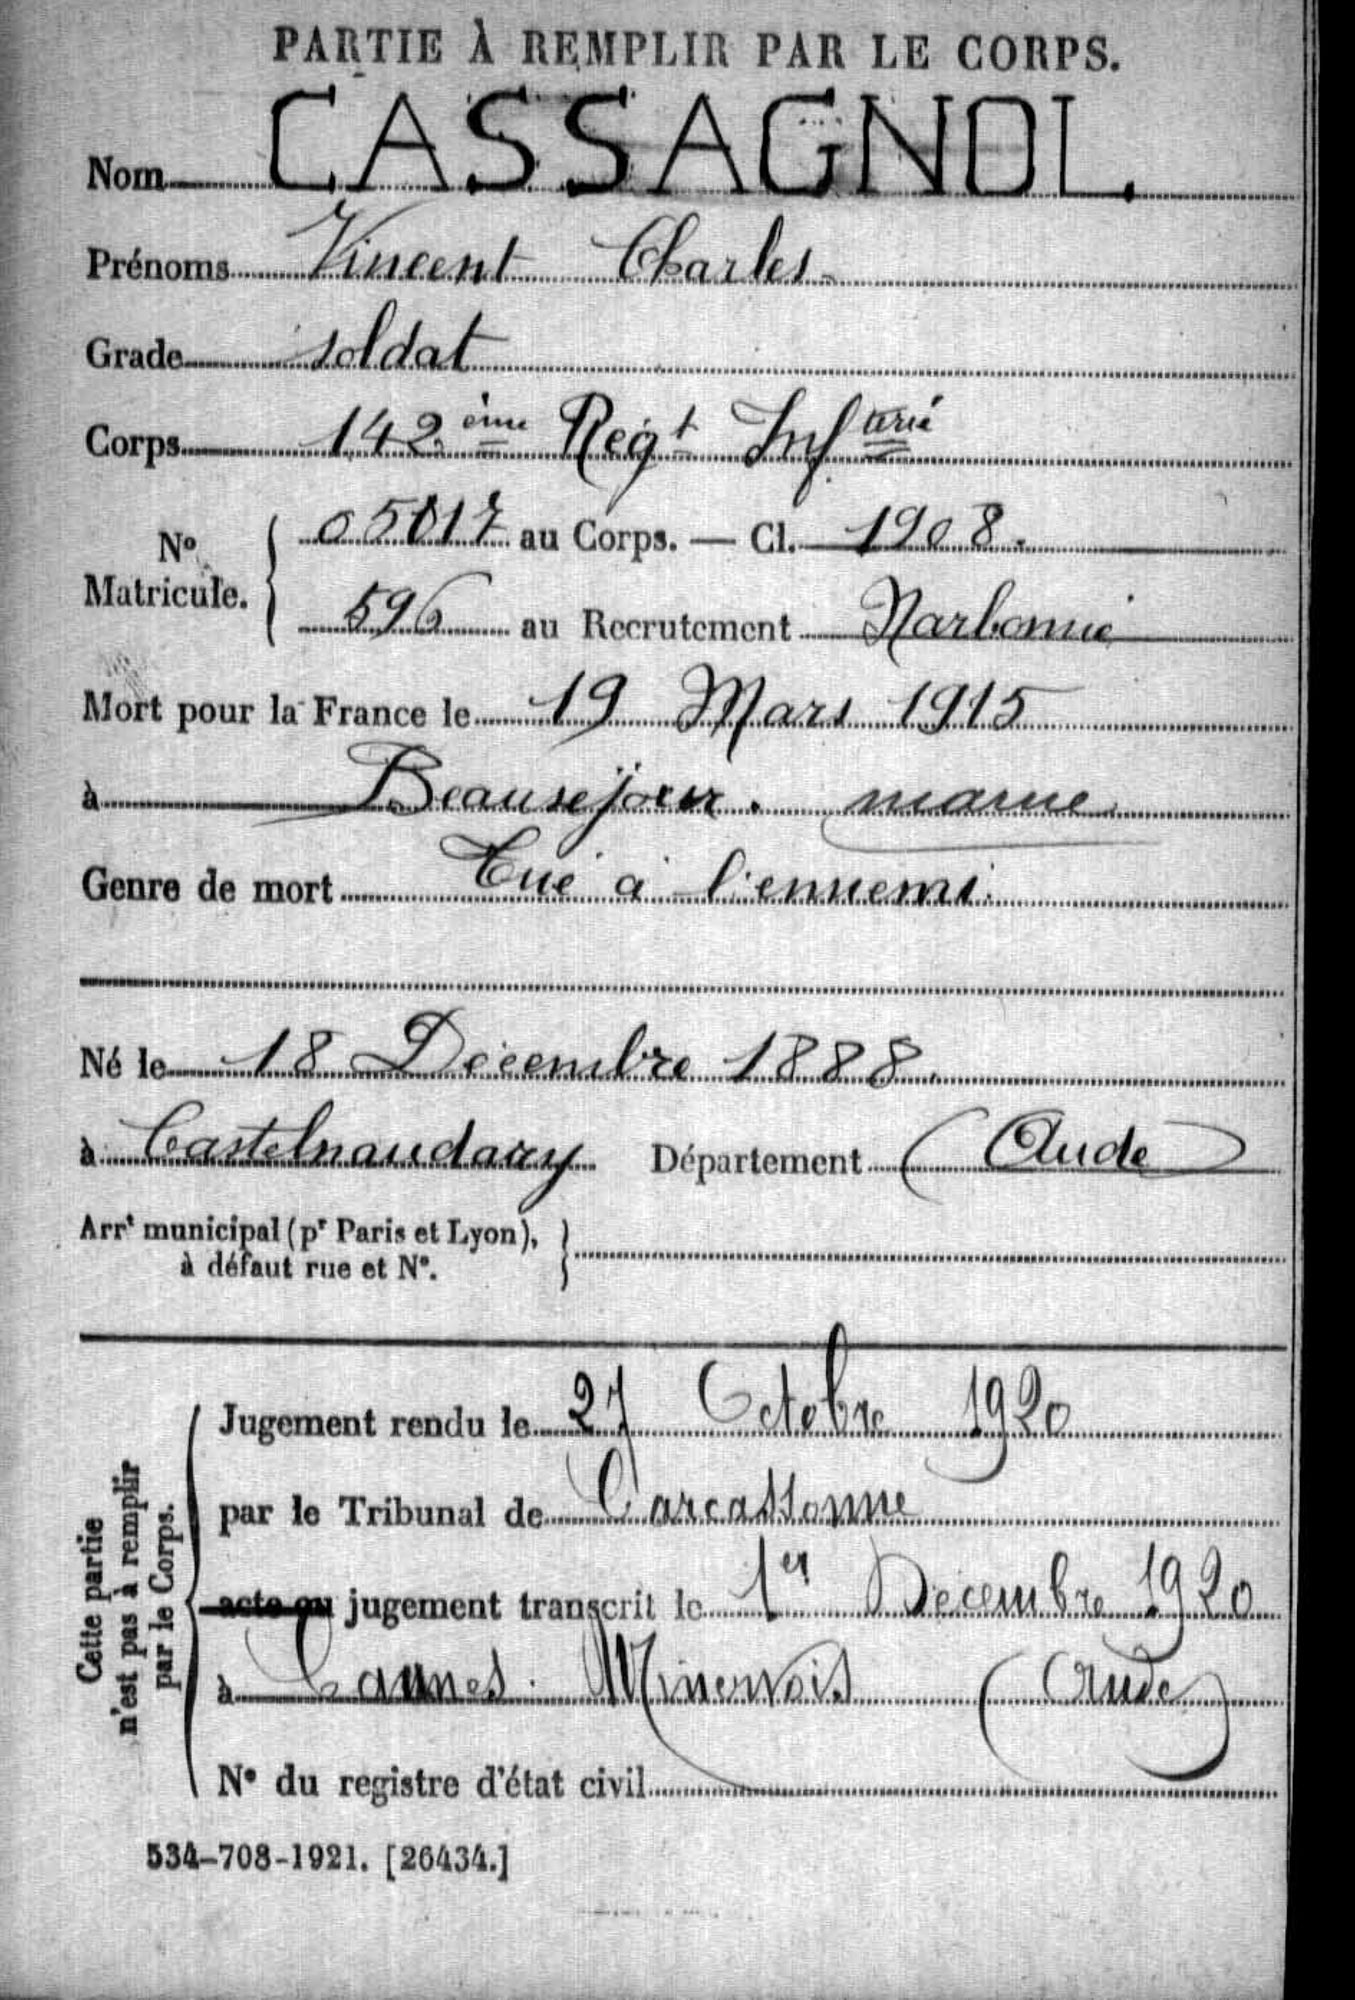 PARTIE À REMPLIR PAR LE CORPS.
Nom CASSAGNOL.
Prénoms Vincent Charles
Grade soldat
Corps 142 ème Regt Inftrié
No Matricule. { 05017 au Corps. — Cl. 1908.
596 au Recrutement Narbonne
Mort pour la France le 19 Mars 1915
à Beauséjour. marne
Genre de mort Tué à l'ennemi.
Né le 18 Décembre 1888.
à Castelnaudary Département (Aude)
Arrt municipal (pr Paris et Lyon),
à défaut rue et No. }
Cette partie
n'est pas à remplir
par le Corps.
Jugement rendu le 27 Octobre 1920
par le Tribunal de Carcassonne
acte ou jugement transcrit le 1er Décembre 1920
à Caunes. Minervois (Aude)
No du registre d'état civil
534-708-1921. [26434.]